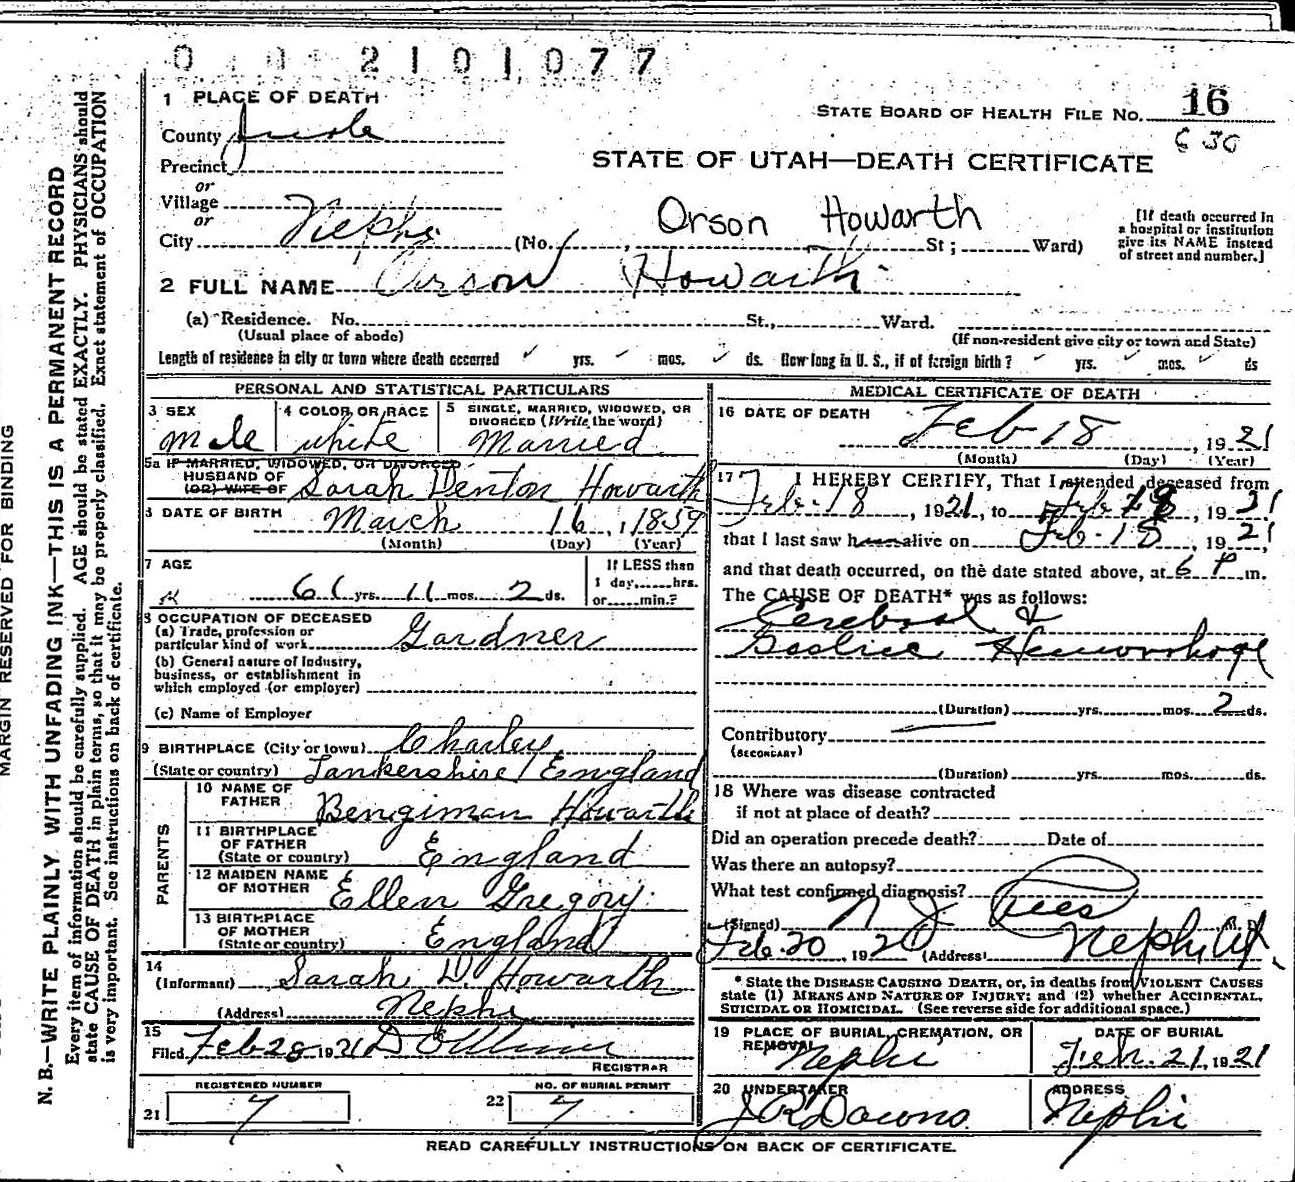 2101077
1 PLACE OF DEATH
STATE BOARD OF HEALTH FILE NO. 16
630
County Juab
Precinct
or
Village
or
City Nephi (No. , St; Ward)
STATE OF UTAH—DEATH CERTIFICATE
Orson Howarth
[If death occurred in a hospital or institution give its NAME instead of street and number.]
2 FULL NAME Orson Howarth
(a) Residence. No. St., Ward.
(Usual place of abode) (If non-resident give city or town and State)
Length of residence in city or town where death occurred yrs. mos. ds. How long in U. S., if of foreign birth? yrs. mos. ds
PERSONAL AND STATISTICAL PARTICULARS
3 SEX Male
4 COLOR OR RACE white
5 SINGLE, MARRIED, WIDOWED, OR DIVORCED (Write the word) Married
5a IF MARRIED, WIDOWED, OR DIVORCED
HUSBAND OF
(OR) WIFE OF Sarah Denton Howarth
6 DATE OF BIRTH March 16, 1859
(Month) (Day) (Year)
7 AGE
61 yrs. 11 mos. 2 ds.
If LESS than
1 day, hrs.
or min.?
8 OCCUPATION OF DECEASED
(a) Trade, profession or
particular kind of work Gardner
(b) General nature of Industry,
business, or establishment in
which employed (or employer)
(c) Name of Employer
9 BIRTHPLACE (City or town) Charley
(State or country) Lankershire England
PARENTS
10 NAME OF FATHER Bengiman Howarth
11 BIRTHPLACE OF FATHER (State or country) England
12 MAIDEN NAME OF MOTHER Ellen Gregory
13 BIRTHPLACE OF MOTHER (State or country) England
14
(Informant) Sarah D. Howarth
(Address) Nephi
15
Filed Feb 28 1921
REGISTRAR
REGISTERED NUMBER
21 7
NO. OF BURIAL PERMIT
22 7
MEDICAL CERTIFICATE OF DEATH
16 DATE OF DEATH
Feb 18, 1921
(Month) (Day) (Year)
17 I HEREBY CERTIFY, That I attended deceased from
Feb. 18, 1921, to Feb 18, 1921
that I last saw h alive on Feb. 18, 1921,
and that death occurred, on the date stated above, at 6 P m.
The CAUSE OF DEATH* was as follows:
Cerebral &
Gastric Hemorrhage
(Duration) yrs. mos. 2 ds.
Contributory
(SECONDARY)
(Duration) yrs. mos. ds.
18 Where was disease contracted
if not at place of death?
Did an operation precede death? Date of
Was there an autopsy?
What test confirmed diagnosis?
(Signed) M. D.
Feb. 20, 192 (Address) Nephi Ut.
* State the DISEASE CAUSING DEATH, or, in deaths from VIOLENT CAUSES
state (1) MEANS AND NATURE OF INJURY; and (2) whether ACCIDENTAL,
SUICIDAL OR HOMICIDAL. (See reverse side for additional space.)
19 PLACE OF BURIAL, CREMATION, OR REMOVAL Nephi
DATE OF BURIAL Feb. 21, 1921
20 UNDERTAKER
ADDRESS
Nephi
READ CAREFULLY INSTRUCTIONS ON BACK OF CERTIFICATE.
MARGIN RESERVED FOR BINDING
N. B.—WRITE PLAINLY WITH UNFADING INK—THIS IS A PERMANENT RECORD
Every item of information should be carefully supplied. AGE should be stated EXACTLY. PHYSICIANS should
state CAUSE OF DEATH in plain terms, so that it may be properly classified. Exact statement of OCCUPATION
is very important. See instructions on back of certificate.